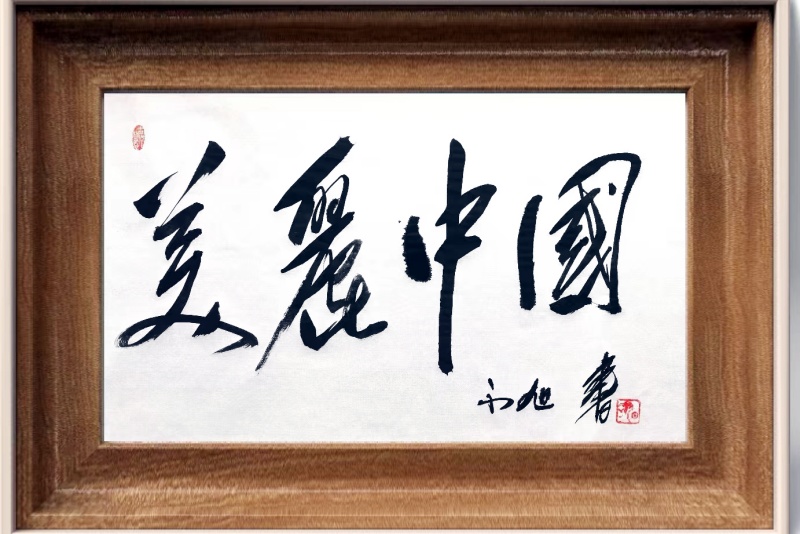 美麗中國
書